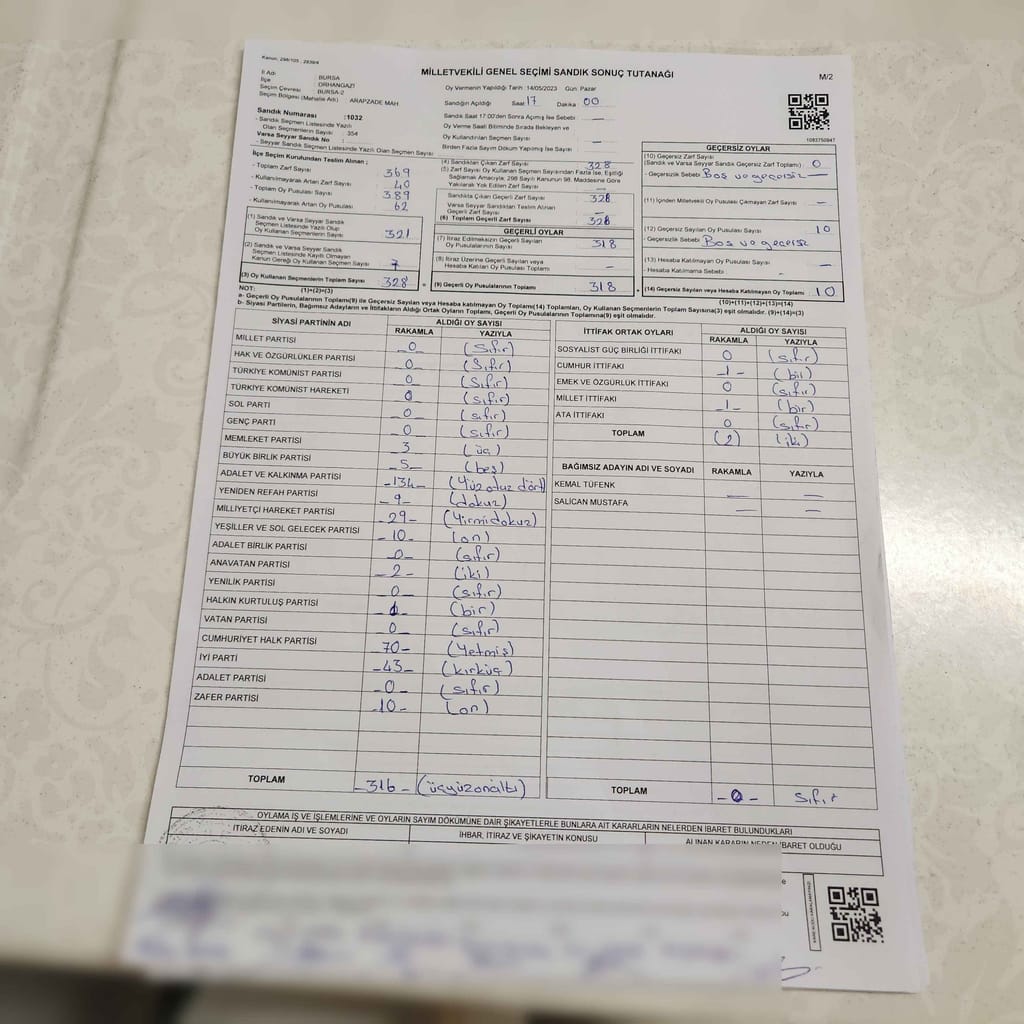 Kanun: 298/105 , 2839/4
MİLLETVEKİLİ GENEL SEÇİMİ SANDIK SONUÇ TUTANAĞI
M/2
İl Adı : BURSA
İlçe : ORHANGAZİ
Seçim Çevresi : BURSA-2
Seçim Bölgesi (Mahalle Adı) : ARAPZADE MAH
Sandık Numarası :1032
- Sandık Seçmen Listesinde Yazılı
Olan Seçmenlerin Sayısı : 354
Varsa Seyyar Sandık No :
- Seyyar Sandık Seçmen Listesinde Yazılı Olan Seçmen Sayısı
Oy Vermenin Yapıldığı Tarih :14/05/2023 Gün: Pazar
Sandığın Açıldığı Saat 17 Dakika 00
Sandık Saat 17:00'den Sonra Açılmış İse Sebebi —
Oy Verme Saati Bitiminde Sırada Bekleyen ve
Oy Kullandırılan Seçmen Sayısı —
Birden Fazla Sayım Döküm Yapılmış İse Sayısı
1083750847
İlçe Seçim Kurulundan Teslim Alınan ;
- Toplam Zarf Sayısı : 369
- Kullanılmayarak Artan Zarf Sayısı : 40
- Toplam Oy Pusulası Sayısı : 389
- Kullanılmayarak Artan Oy Pusulası : 62
(1) Sandık ve Varsa Seyyar Sandık
Seçmen Listesinde Yazılı Olup
Oy Kullanan Seçmenlerin Sayısı : 321
(2) Sandık ve Varsa Seyyar Sandık
Seçmen Listesinde Kayıtlı Olmayan
Kanun Gereği Oy Kullanan Seçmen Sayısı : 7
(3) Oy Kullanan Seçmenlerin Toplam Sayısı : 328
(1)+(2)=(3)
(4) Sandıktan Çıkan Zarf Sayısı 328
(5) Zarf Sayısı Oy Kullanan Seçmen Sayısından Fazla İse, Eşitliği
Sağlamak Amacıyla; 298 Sayılı Kanunun 98. Maddesine Göre
Yakılarak Yok Edilen Zarf Sayısı —
Sandıkta Çıkan Geçerli Zarf Sayısı 328
Varsa Seyyar Sandıktan Teslim Alınan
Geçerli Zarf Sayısı —
(6) Toplam Geçerli Zarf Sayısı 328
GEÇERLİ OYLAR
(7) İtiraz Edilmeksizin Geçerli Sayılan
Oy Pusulalarının Sayısı 318
(8) İtiraz Üzerine Geçerli Sayılan veya
Hesaba Katılan Oy Pusulası Toplamı —
(9) Geçerli Oy Pusulalarının Toplamı 318
GEÇERSİZ OYLAR
(10) Geçersiz Zarf Sayısı
(Sandık ve Varsa Seyyar Sandık Geçersiz Zarf Toplamı) : 0
- Geçersizlik Sebebi Boş ve geçersiz —
(11) İçinden Milletvekili Oy Pusulası Çıkmayan Zarf Sayısı —
(12) Geçersiz Sayılan Oy Pusulası Sayısı 10
- Geçersizlik Sebebi Boş ve geçersiz
(13) Hesaba Katılmayan Oy Pusulası Sayısı —
- Hesaba Katılmama Sebebi -
(14) Geçersiz Sayılan veya Hesaba Katılmayan Oy Toplamı 10
(10)+(11)+(12)+(13)=(14)
NOT:
a- Geçerli Oy Pusulalarının Toplamı(9) ile Geçersiz Sayılan veya Hesaba katılmayan Oy Toplamı(14) Toplamları, Oy Kullanan Seçmenlerin Toplam Sayısına(3) eşit olmalıdır. (9)+(14)=(3)
b- Siyasi Partilerin, Bağımsız Adayların ve İttifakların Aldığı Ortak Oyların Toplamı, Geçerli Oy Pusulalarının Toplamına(9) eşit olmalıdır.
SİYASİ PARTİNİN ADI ALDIĞI OY SAYISI
RAKAMLA YAZIYLA
MİLLET PARTİSİ 0 (Sıfır)
HAK VE ÖZGÜRLÜKLER PARTİSİ 0 (Sıfır)
TÜRKİYE KOMÜNİST PARTİSİ 0 (sıfır)
TÜRKİYE KOMÜNİST HAREKETİ 0 (sıfır)
SOL PARTİ 0 (sıfır)
GENÇ PARTİ 0 (sıfır)
MEMLEKET PARTİSİ 3 (üç)
BÜYÜK BİRLİK PARTİSİ 5 (beş)
ADALET VE KALKINMA PARTİSİ 134 (Yüzotuz dört)
YENİDEN REFAH PARTİSİ 9 (dokuz)
MİLLİYETÇİ HAREKET PARTİSİ 29 (Yirmidokuz)
YEŞİLLER VE SOL GELECEK PARTİSİ 10 (on)
ADALET BİRLİK PARTİSİ 0 (sıfır)
ANAVATAN PARTİSİ 2 (iki)
YENİLİK PARTİSİ 0 (sıfır)
HALKIN KURTULUŞ PARTİSİ 1 (bir)
VATAN PARTİSİ 0 (sıfır)
CUMHURİYET HALK PARTİSİ 70 (Yetmiş)
İYİ PARTİ 43 (kırküç)
ADALET PARTİSİ 0 (sıfır)
ZAFER PARTİSİ 10 (on)
TOPLAM 316 (üçyüzonaltı)
İTTİFAK ORTAK OYLARI ALDIĞI OY SAYISI
RAKAMLA YAZIYLA
SOSYALİST GÜÇ BİRLİĞİ İTTİFAKI 0 (sıfır)
CUMHUR İTTİFAKI 1 (bir)
EMEK VE ÖZGÜRLÜK İTTİFAKI 0 (sıfır)
MİLLET İTTİFAKI 1 (bir)
ATA İTTİFAKI 0 (sıfır)
TOPLAM (2) (iki)
BAĞIMSIZ ADAYIN ADI VE SOYADI RAKAMLA YAZIYLA
KEMAL TÜFENK — —
SALİCAN MUSTAFA — —
TOPLAM 0 Sıfır
OYLAMA İŞ VE İŞLEMLERİNE VE OYLARIN SAYIM DÖKÜMÜNE DAİR ŞİKAYETLERLE BUNLARA AİT KARARLARIN NELERDEN İBARET BULUNDUKLARI
İTİRAZ EDENİN ADI VE SOYADI İHBAR, İTİRAZ VE ŞİKAYETİN KONUSU ALINAN KARARIN NEDEN İBARET OLDUĞU